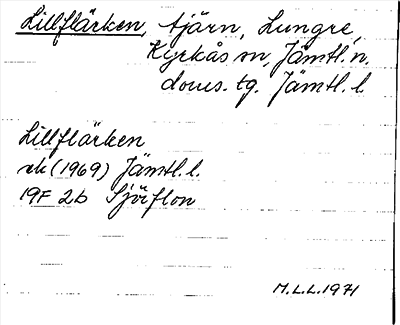 Lillflärken, tjärn, Lungre,
Kyrkås sn, Jämtl. n.
doms. tg. Jämtl. l.
Lillflärken
ek (1969) Jämtl. l.
19F 2b Sjöflon
M.L.L. 1971